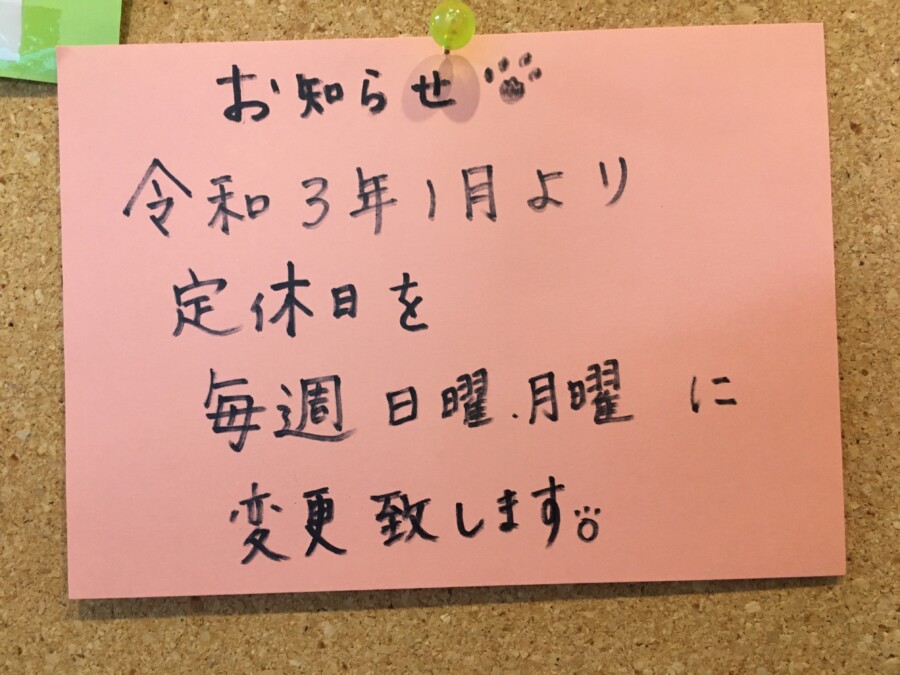 お知らせ
令和3年1月より
定休日を
毎週 日曜.月曜 に
変更致します。